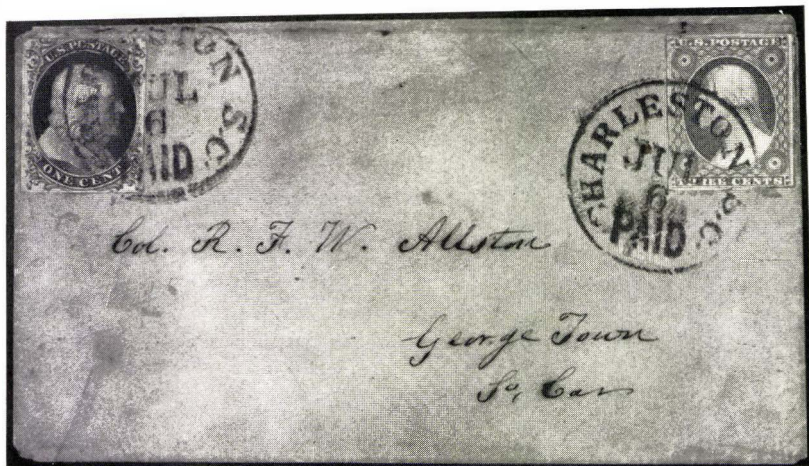 U.S. POSTAGE
ONE CENT
STON S.C.
JUL
6
PAID
U.S. POSTAGE
CENTS
CHARLESTON S.C.
JUL
6
PAID
Col. R. F. W. Allston
George Town
So, Car